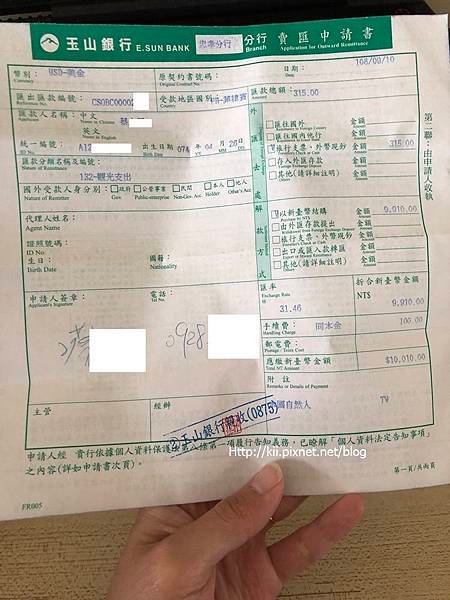 玉山銀行 E.SUN BANK 忠孝分行 分行 Branch 賣匯申請書 Application for Outward Remittance
幣別: Currency USD-美金
原契約書號碼: Original Contract No.
日期: Date 108/09/10
匯出匯款編號: Reference No. CSOBC00002
受款地區國別: Country
匯款總額: 315.00
匯款人名稱: Applicant 中文 Name in Chinese
英文 Name in English
統一編號: ID No. A12
出生日期 Birth Date 074 年 YY 04 月 MM 26 日 DD
匯款分類名稱及編號: Nature of Remittance
132-觀光支出
國外受款人身分別: Nature of Remitter □政府 Gov □公營事業 Public-enterprise □民間 Non-Gov. Acc □本人 Holder □他人 Other's Acc
外匯去處
□匯往國外 Remittance to Foreign Country 金額 Amount
□匯往國內他行 金額 Amount
旅行支票、外幣現鈔 Traveller's Check or Cash 金額 Amount 315.00
□存入外匯存款 金額 Amount
□其他(請詳細註明) Others 金額 Amount
代理人姓名: Agent Name
證照號碼: ID No
生日: Birth Date
國籍: Nationality
解款方式
以新臺幣結購 Purchase by NT$ 金額 Amount 9,910.00
□由外匯存款提出 金額 Amount
□旅行支票、外幣現鈔 Traveller's Check or Cash 金額 Amount
□出口或匯入款轉匯 金額 Amount
□其他(請詳細註明) Others 金額 Amount
申請人簽章: Applicant's Signature
電話: Tel No.
0928
匯率 Exchange Rate 31.46
折合新臺幣 NT$ 9,910.00
手續費: Handling Charge 同本金 100.00
郵電費: Postage / Telex Cost
應繳新臺幣金額 Total NT Amount $10,010.00
附註 Remarks or Details of Payment
國自然人 TW
主管
經辦
玉山銀行親收(0875)
http://kii.pixnet.net/blog
申請人經 貴行依據個人資料保護法第八條第一項履行告知義務,已瞭解「個人資料法定告知事項」
之內容(詳如申請書次頁)。
FR005
第一頁/共兩頁
第二聯:由申請人收執